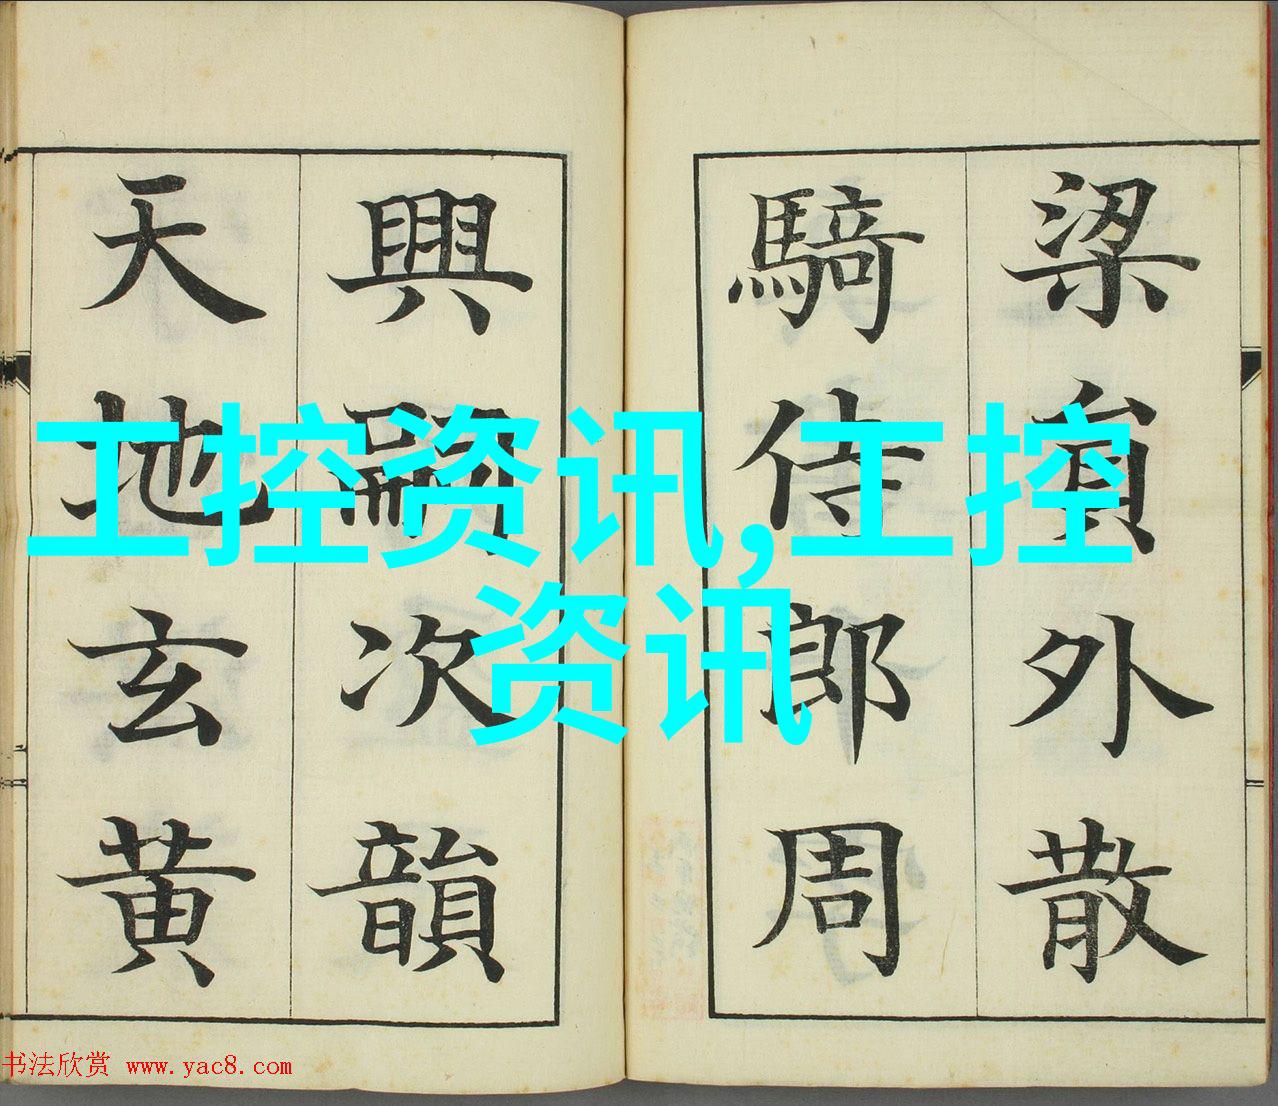 梁員外散
騎侍郎周
興嗣次韻
天地玄黃
工控资讯,工控
资讯
书法欣赏 www.yac8.com